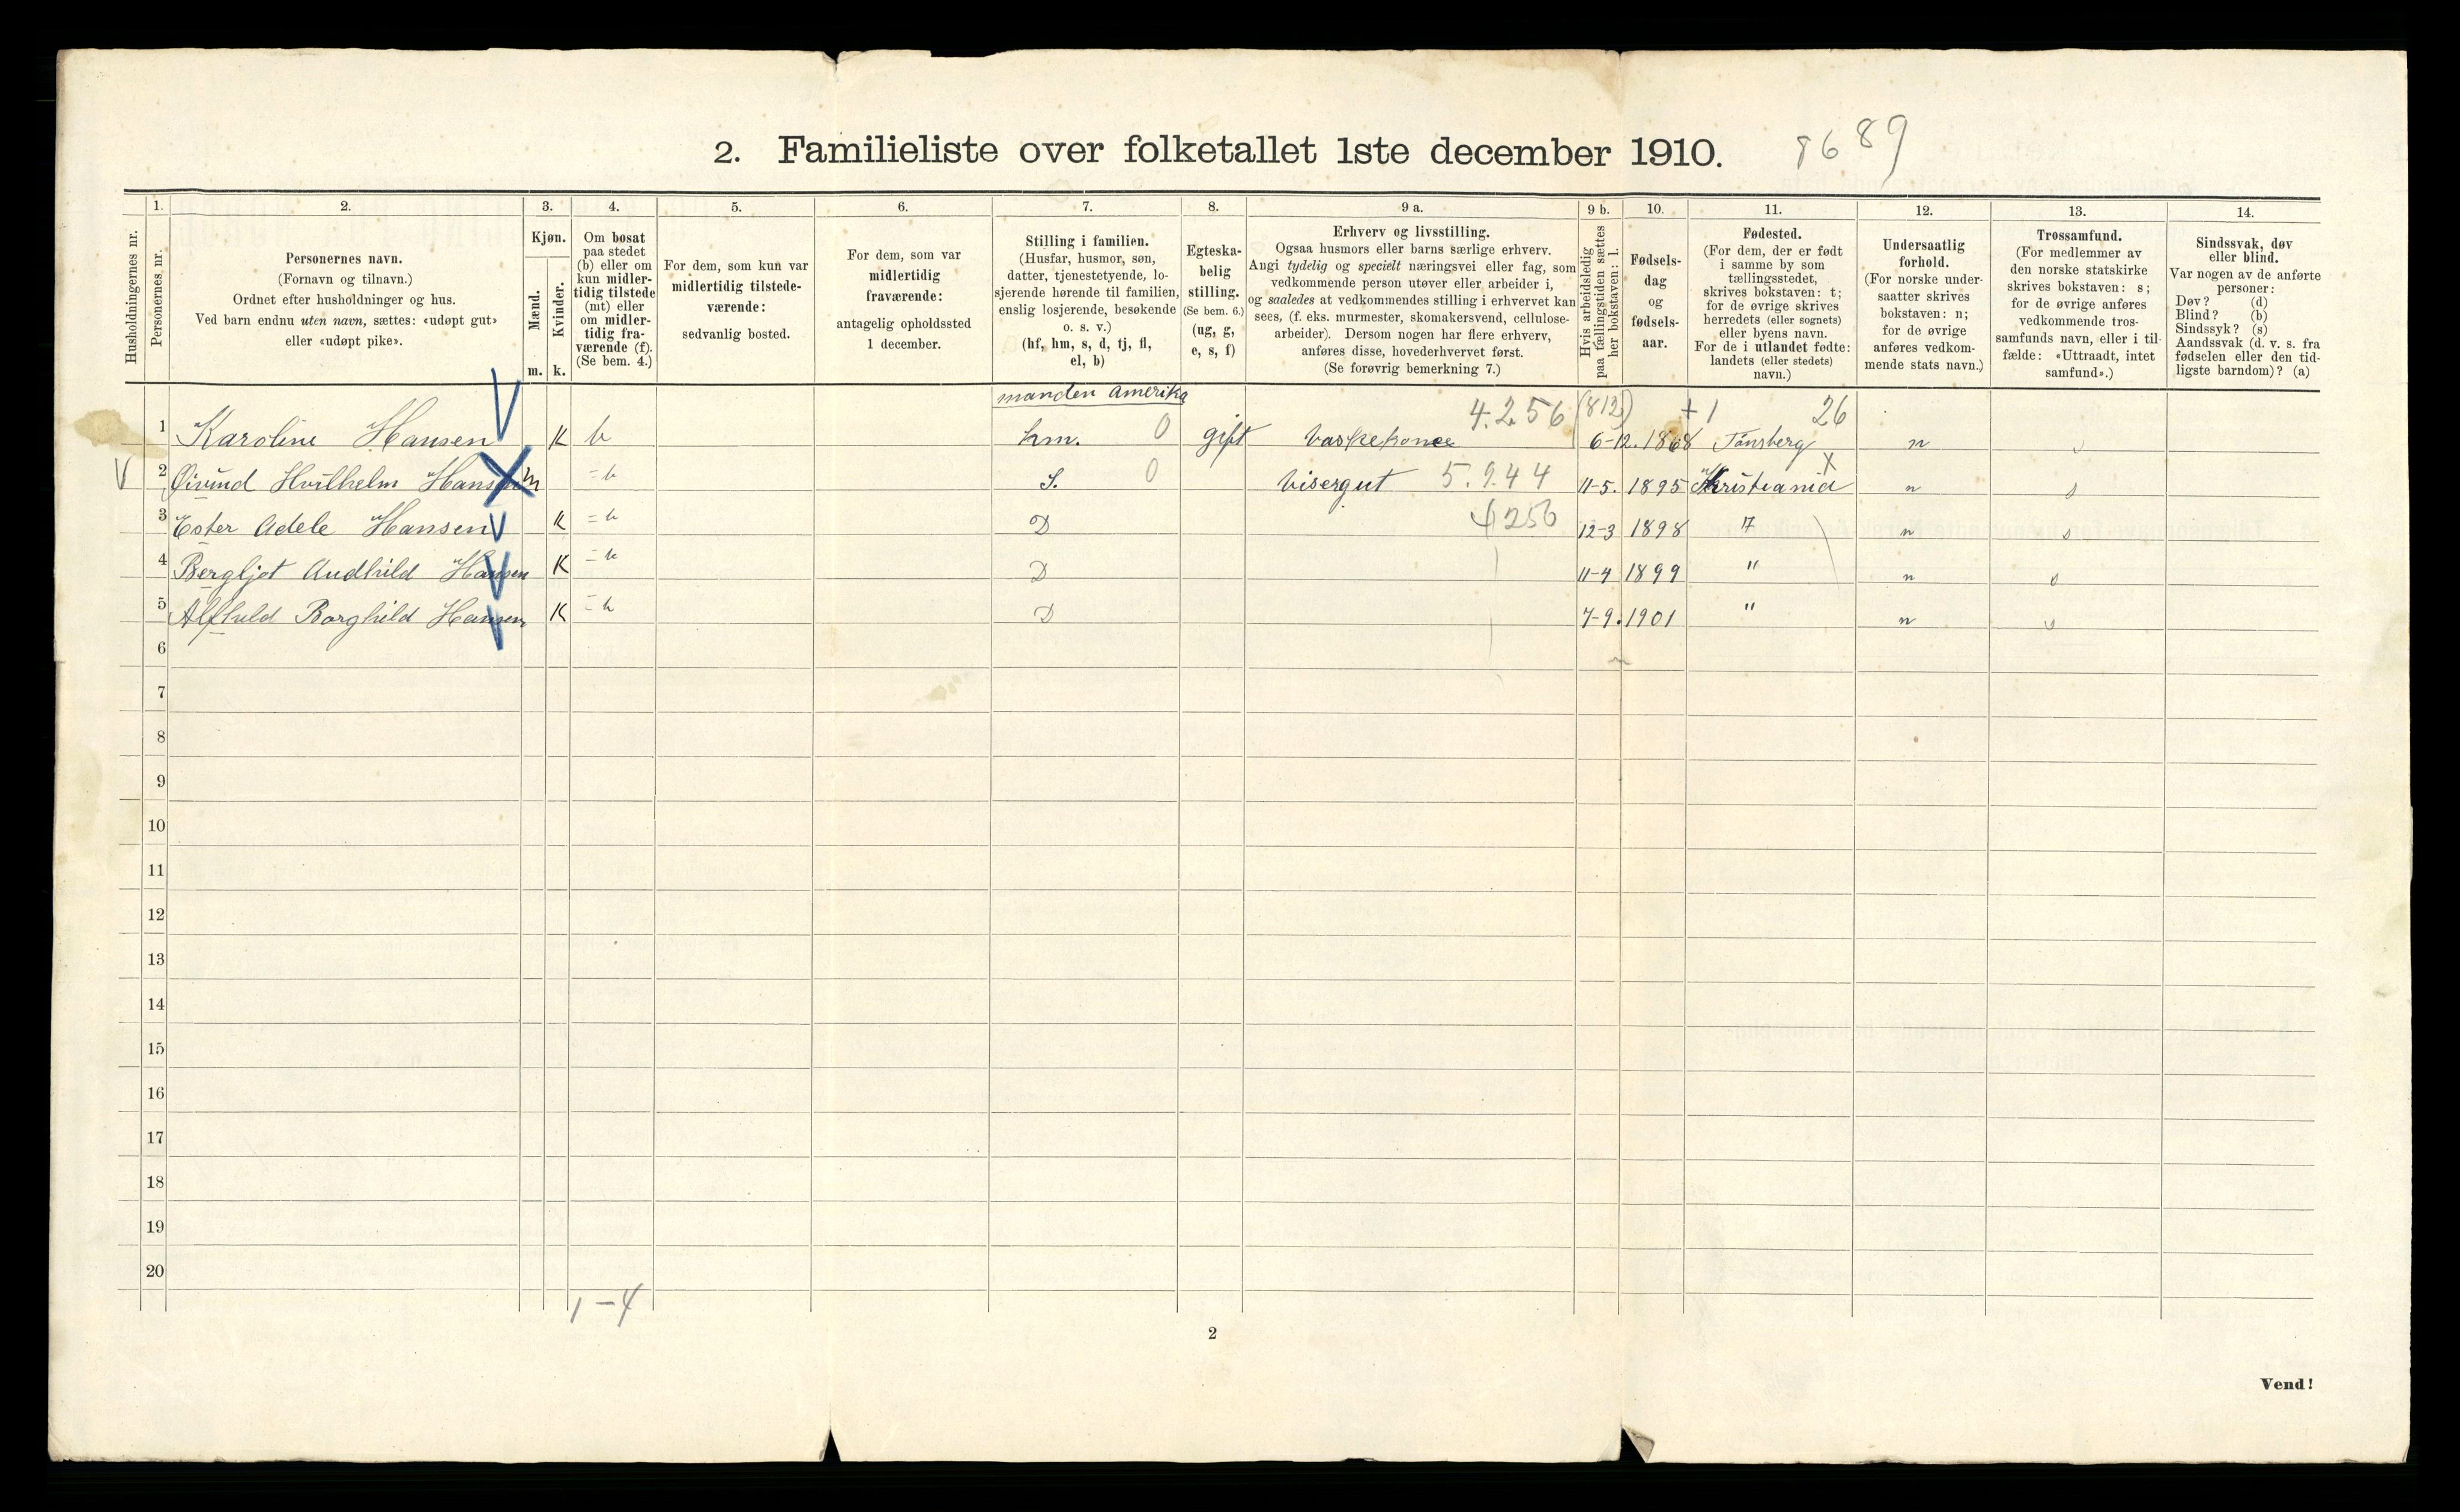 2. Familieliste over folketallet 1ste december 1910. 8689
Husholdningernes nr.
1. Personernes nr.
2. Personernes navn.
(Fornavn og tilnavn.)
Ordnet efter husholdninger og hus.
Ved barn endnu uten navn, sættes: «udøpt gut»
eller «udøpt pike».
3. Kjøn.
Mænd. m.
Kvinder. k.
4. Om bosat
paa stedet
(b) eller om
kun midler-
tidig tilstede
(mt) eller
om midler-
tidig fra-
værende (f).
(Se bem. 4.)
5. For dem, som kun var
midlertidig tilstede-
værende:
sedvanlig bosted.
6. For dem, som var
midlertidig
fraværende:
antagelig opholdssted
1 december.
7. Stilling i familien.
(Husfar, husmor, søn,
datter, tjenestetyende, lo-
sjerende hørende til familien,
enslig losjerende, besøkende
o. s. v.)
(hf, hm, s, d, tj, fl,
el, b)
8. Egteska-
belig
stilling.
(Se bem. 6.)
(ug, g,
e, s, f)
9 a. Erhverv og livsstilling.
Ogsaa husmors eller barns særlige erhverv.
Angi tydelig og specielt næringsvei eller fag, som
vedkommende person utøver eller arbeider i,
og saaledes at vedkommendes stilling i erhvervet kan
sees, (f. eks. murmester, skomakersvend, cellulose-
arbeider). Dersom nogen har flere erhverv,
anføres disse, hovederhvervet først.
(Se forøvrig bemerkning 7.)
9 b. Hvis arbeidsledig
paa tællingstiden sættes
her bokstaven: l.
10. Fødsels-
dag
og
fødsels-
aar.
11. Fødested.
(For dem, der er født
i samme by som
tællingsstedet,
skrives bokstaven: t;
for de øvrige skrives
herredets (eller sognets)
eller byens navn.
For de i utlandet fødte:
landets (eller stedets)
navn.)
12. Undersaatlig
forhold.
(For norske under-
saatter skrives
bokstaven: n;
for de øvrige
anføres vedkom-
mende stats navn.)
13. Trossamfund.
(For medlemmer av
den norske statskirke
skrives bokstaven: s;
for de øvrige anføres
vedkommende tros-
samfunds navn, eller i til-
fælde: «Uttraadt, intet
samfund».)
14. Sindssvak, døv
eller blind.
Var nogen av de anførte
personer:
Døv? (d)
Blind? (b)
Sindssyk? (s)
Aandssvak (d. v. s. fra
fødselen eller den tid-
ligste barndom)? (a)
manden Amerika
4.256 (812) +1 26
1 Karoline Hansen K b hm. 0 gift Vaskekone 6-12.1868 Tønsberg n s
V 2 Øivind Hvilhelm Hansen m - b S. 0 Visergut 5.944 11-5. 1895 Kristiania n s
3 Ester Adele Hansen K - b D 4256 12-3 1898 " n s
4 Bergljot Audhild Hansen K - b D 11-4 1899 " n s
5 Alfhild Borghild Hansen K - b D 7-9. 1901 " n s
6
7
8
9
10
11
12
13
14
15
16
17
18
19
20
1-4
2
Vend!